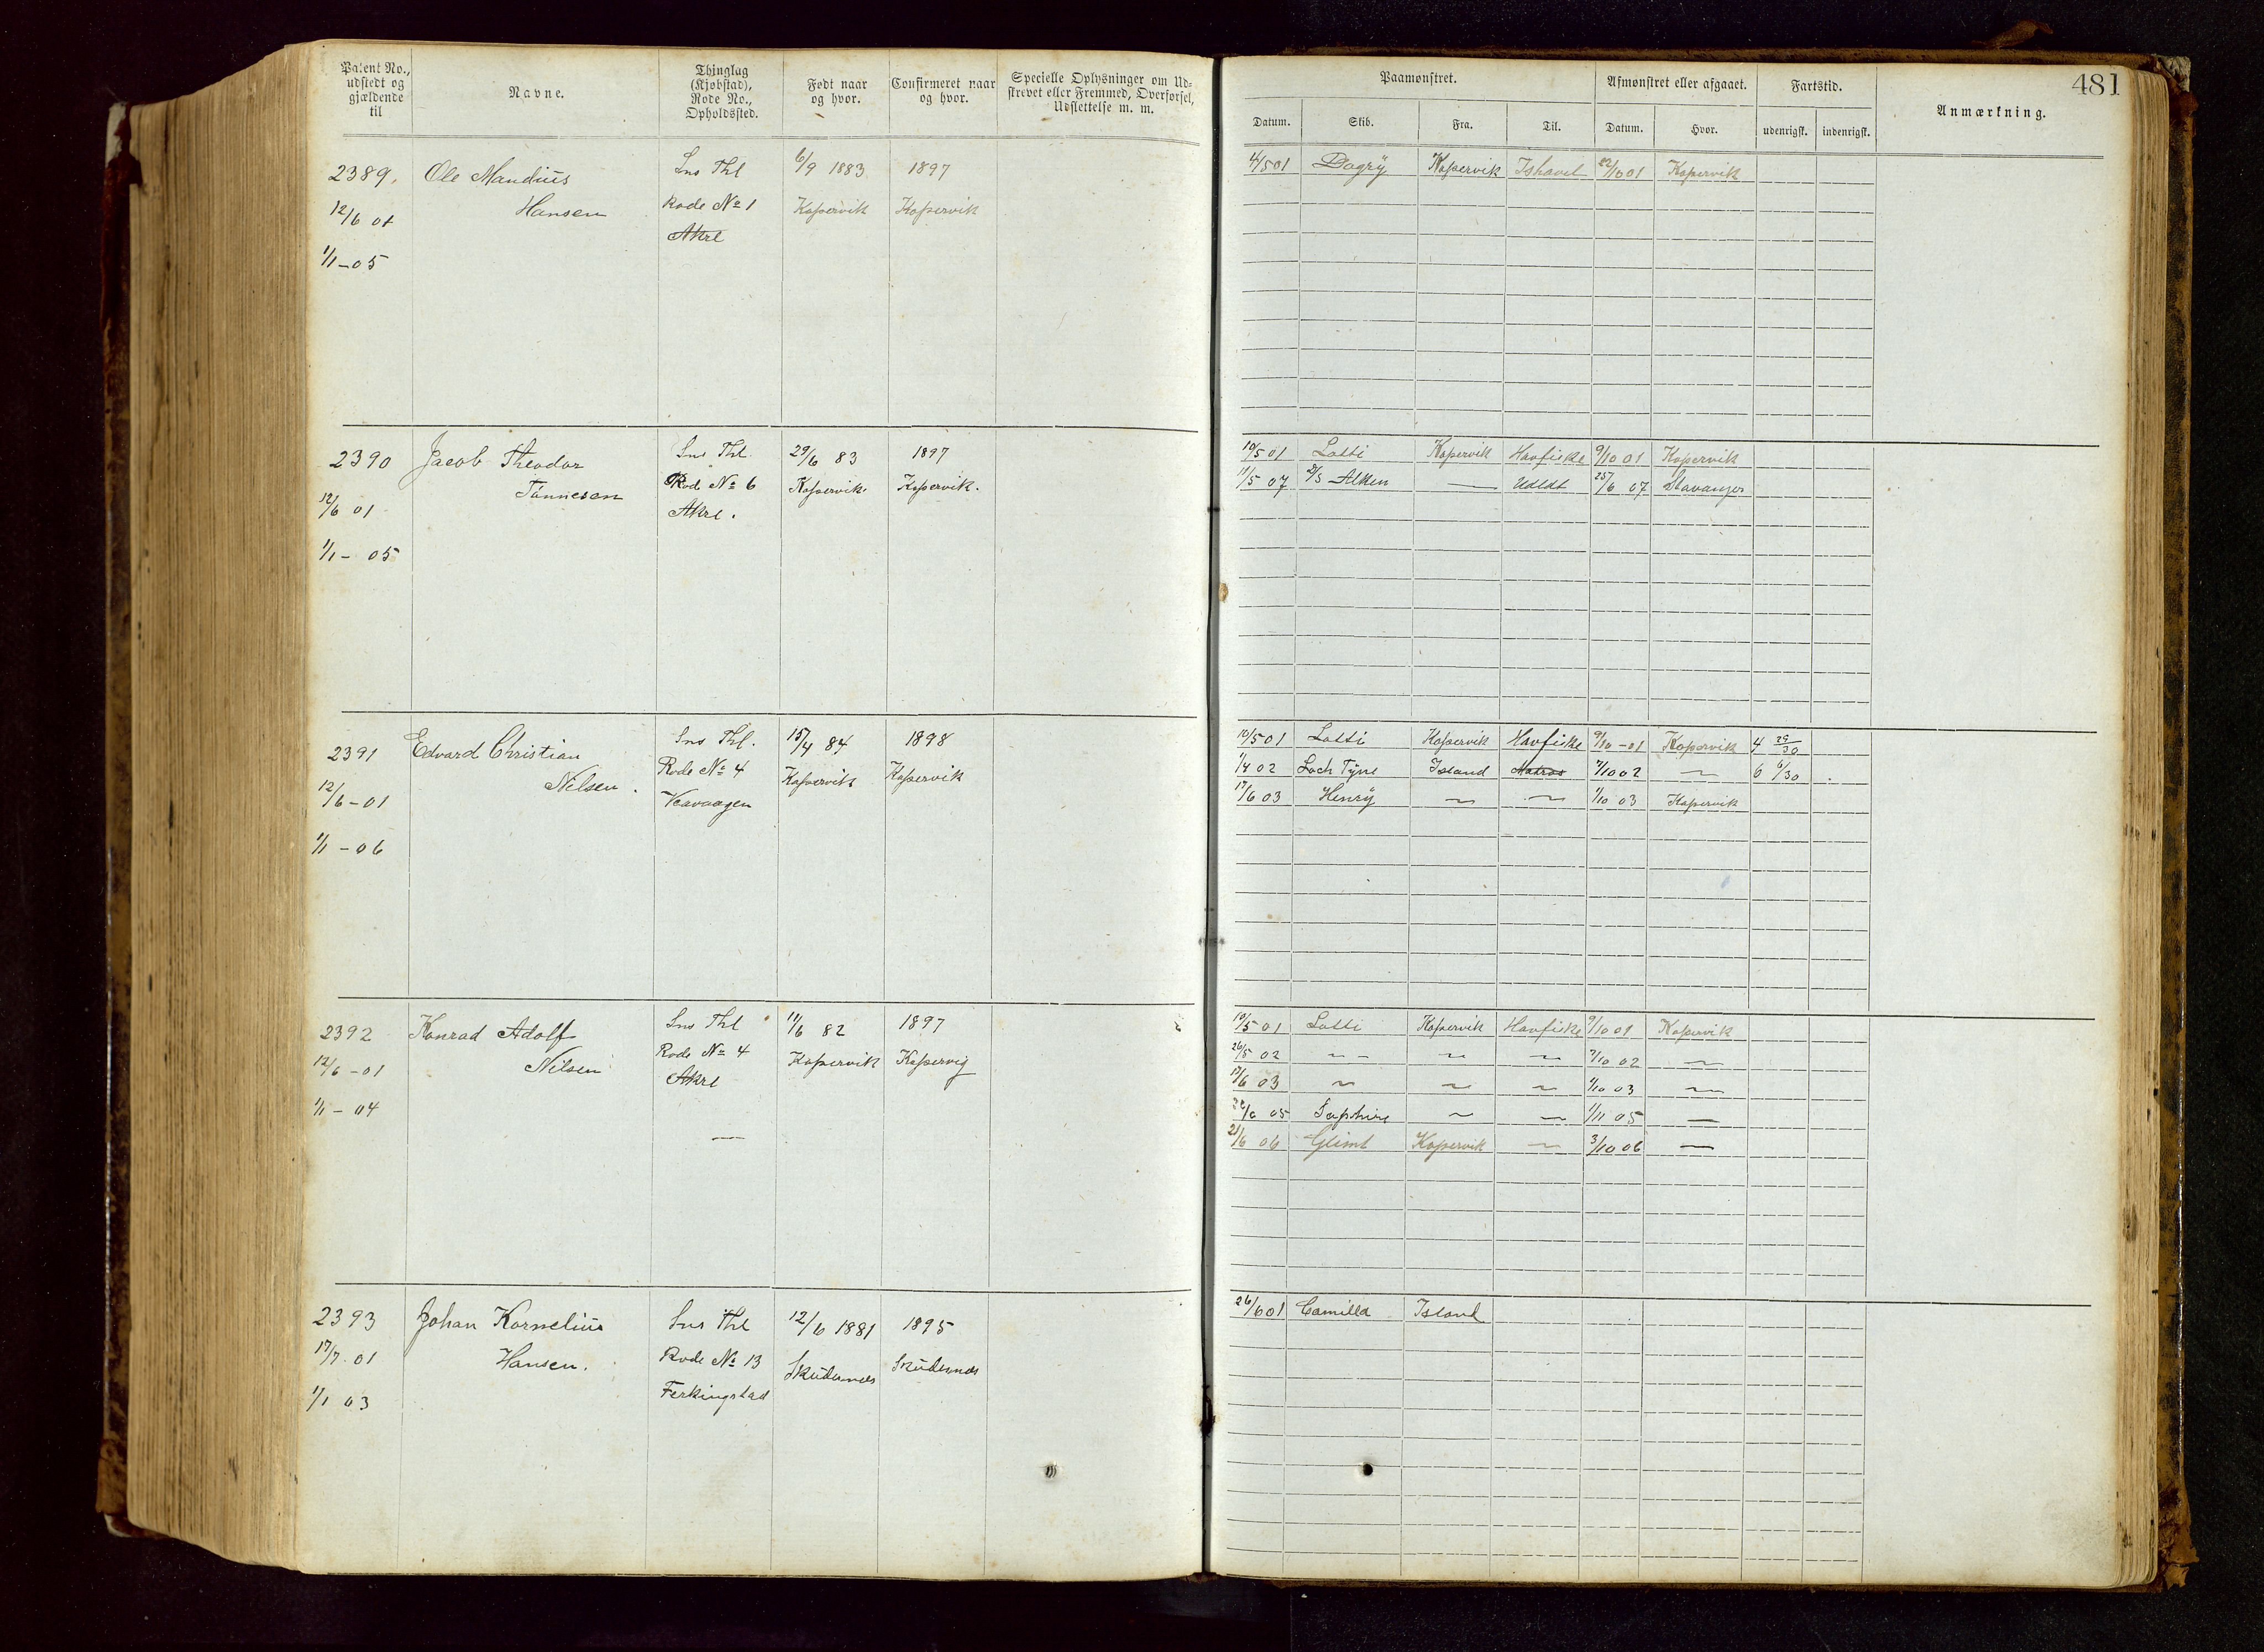 Patent No.,
udstedt og
gjældende
til
Navne.
Thinglag
(Kjøbstad),
Rode No.,
Opholdssted.
Født naar
og hvor.
Confirmeret naar
og hvor.
Specielle Oplysninger om Ud-
skrevet eller Fremmed, Overførsel,
Udslettelse m. m.
Paamønstret.
Afmønstret eller afgaaet.
Fartstid.
Anmærkning.
481
Datum.
Skib.
Fra.
Til.
Datum.
Hvor.
udenrigsk.
indenrigsk.
2389. Ole Mandius Sns Thl 6/9 1883 1897
12/6 01 Hansen Rode No 1 Kopervik Kopervik
Akre
1/1-05
4/5 01 Kopervik Ishavet 22/10 01 Kopervik
2390 Jacob Theodor Sns Thl. 29/6 83 1897
Tønnesen Rode No 6 Kopervik. Kopervik.
12/6 01 Akre.
1/1- 05
10/5 01 Lotti Kopervik Havfiske 9/10 01 Kopervik
11/5 07 D/S Alken — Udldt 25/6 07 Stavanger
2391 Edvard Christian Sns Thl. 15/4 84 1898
Nelsen. Rode No 4 Kopervik Kopervik
12/6-01 Veavaagen
1/1 - 06
10/5 01 Lotti Kopervik Havfiske 9/10-01 Kopervik 4 29/30
1/4 02 Loch Tyne Island 7/10 02 — 6 6/30
17/6 03 Henry — — 1/10 03 Kopervik
2392 Konrad Adolf Sns Thl 11/6 82 1897
12/6-01 Nilsen Rode No 4 Kopervik Kopervig
Akre
1/1 - 04
—
10/5 01 Lotti Kopervik Havfiske 9/10 01 Kopervik
26/5 02 — — — — 7/10 02 —
17/6 03 — — — 1/10 03 —
05 Saphire — — 1/11 05 —
21/6 06 Glimt Kopervik — 3/10 06 —
2393 Johan Kornelius Sns Thl 12/6 1881 1895
17/7 01 Hansen. Rode No 13 Skudenæs Skudesnæs
1/1 03 Ferkingstad
26/6 01 Camilla Island